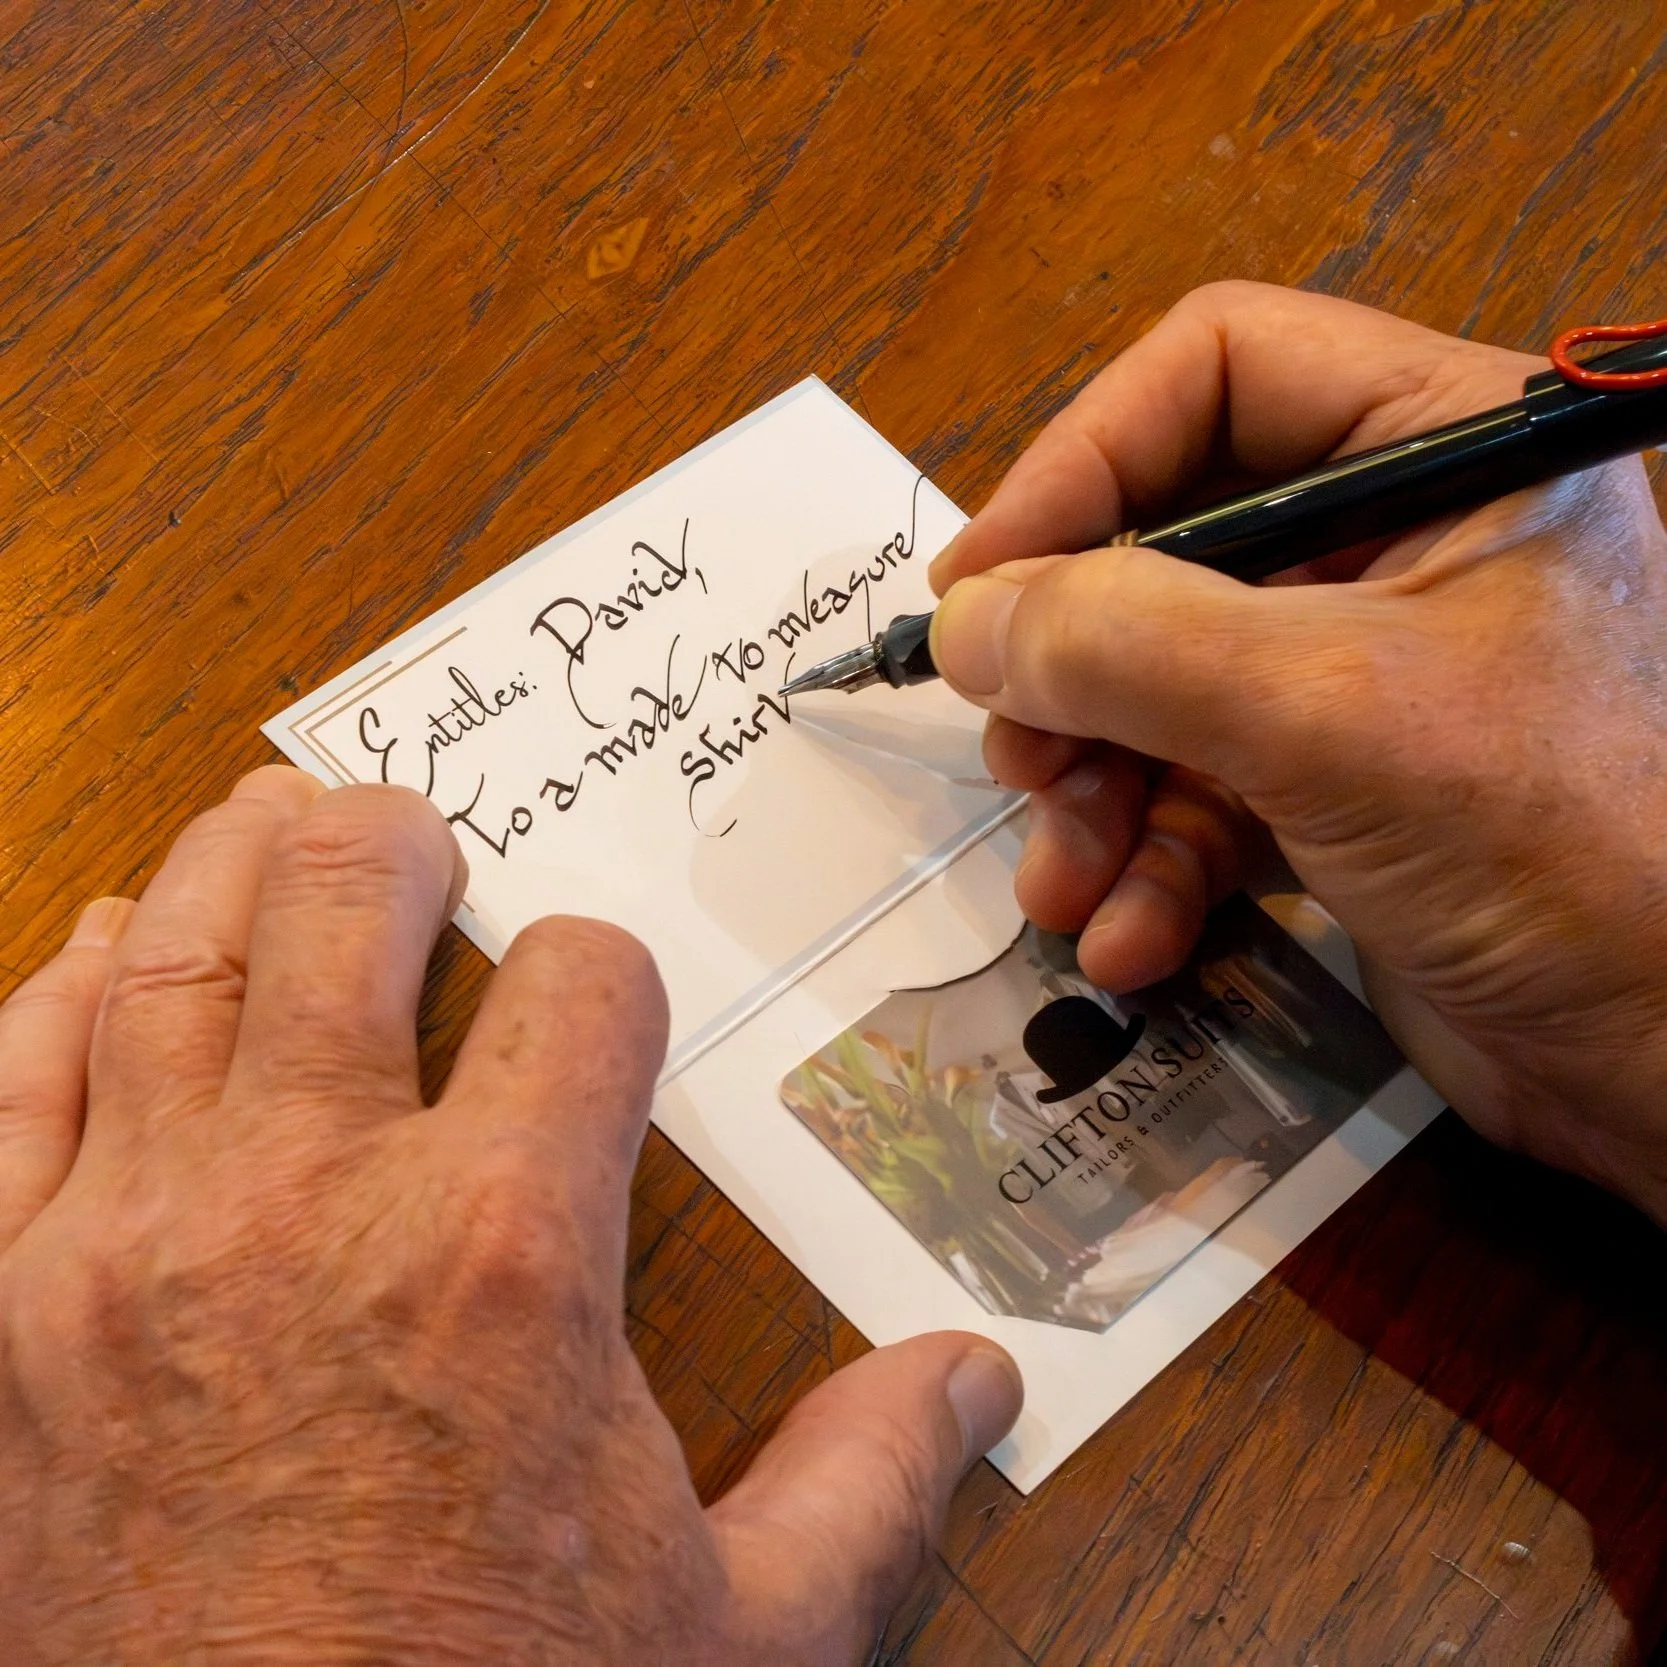 Entitles: David,
To a made to measure
Shirt
CLIFTON SUITS
TAILORS & OUTFITTERS